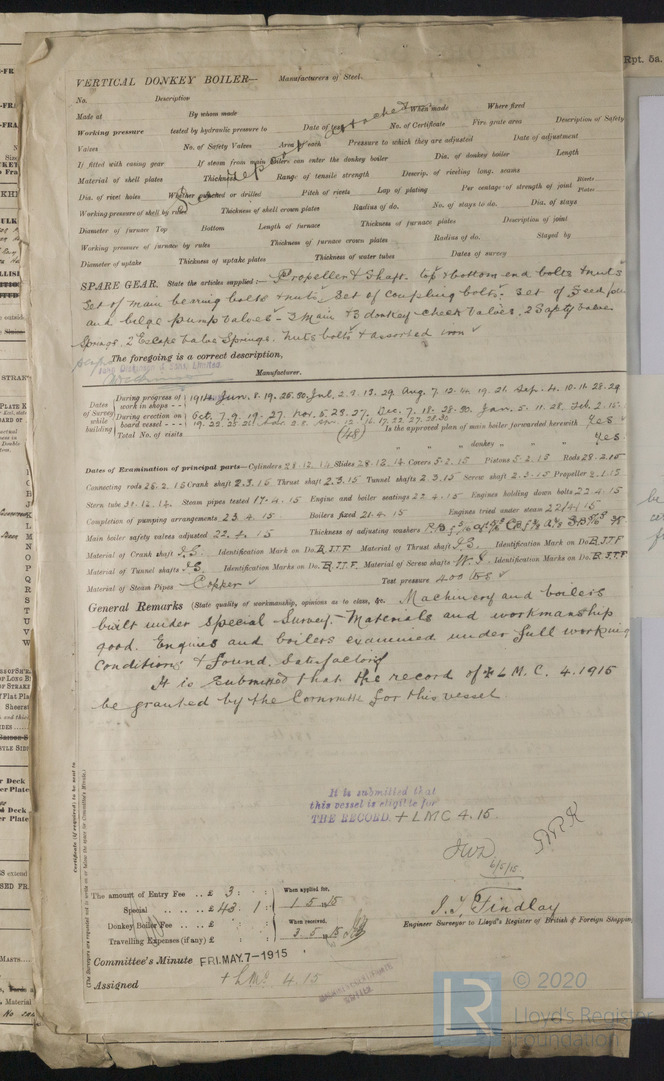 Rpt. 5a.
VERTICAL DONKEY BOILER— Manufacturers of Steel.
No. Description
Made at By whom made When made Where fixed
Working pressure tested by hydraulic pressure to Date of test No. of Certificate Fire grate area Description of Safety
Valves No. of Safety Valves Area of each Pressure to which they are adjusted Date of adjustment
If fitted with easing gear If steam from main boilers can enter the donkey boiler Dia. of donkey boiler Length
Material of shell plates Thickness Range of tensile strength Descrip. of riveting long. seams
Dia. of rivet holes Whether punched or drilled Pitch of rivets Lap of plating Per centage of strength of joint Rivets Plates
Working pressure of shell by rules Thickness of shell crown plates Radius of do. No. of stays to do. Dia. of stays
Diameter of furnace Top Bottom Length of furnace Thickness of furnace plates Description of joint
Working pressure of furnace by rules Thickness of furnace crown plates Radius of do. Stayed by
Diameter of uptake Thickness of uptake plates Thickness of water tubes Dates of survey
SPARE GEAR. State the articles supplied:— Propeller & Shaft. top & bottom end bolts & nuts
Set of main bearing bolts & nuts, Set of coupling bolts. Set of feed
and bilge pump valves - 3 Main & 3 donkey check valves, 2 Safety valve
Springs. 2 Escape valve Springs. Nuts bolts & assorted iron
The foregoing is a correct description,
Manufacturer.
Dates of Survey while building
During progress of work in shops -- 1914. Jun. 8. 19. 25. 30. Jul. 2. 7. 13. 29. Aug. 7. 12. 14. 19. 21. Sep. 4. 10. 16. 28. 29
During erection on board vessel --- Oct. 7. 9. 19. 27. Nov. 5. 23. 27. Dec. 7. 18. 28. 30. Jan. 5. 11. 28. Feb. 2. 15.
Total No. of visits (48) Is the approved plan of main boiler forwarded herewith Yes
" " " donkey " " Yes
Dates of Examination of principal parts—Cylinders 28.12.14 Slides 28.12.14 Covers 5.2.15 Pistons 5.2.15 Rods 28.2.15
Connecting rods 26.2.15 Crank shaft 2.3.15 Thrust shaft 2.3.15 Tunnel shafts 2.3.15 Screw shaft 2.3.15 Propeller 2.1.15
Stern tube 31.12.14. Steam pipes tested 17.4.15 Engine and boiler seatings 22.4.15 Engines holding down bolts 22.4.15
Completion of pumping arrangements 23.4.15 Boilers fixed 21.4.15 Engines tried under steam 22/4/15
Main boiler safety valves adjusted 22.4.15 Thickness of adjusting washers
Material of Crank shaft I.S. Identification Mark on Do. B.J.T.F Material of Thrust shaft I.S. Identification Mark on Do. B.J.T.F
Material of Tunnel shafts I.S. Identification Marks on Do. B.J.T.F. Material of Screw shafts W.S. Identification Marks on Do. B.J.T.F
Material of Steam Pipes Copper Test pressure 400 lbs
General Remarks (State quality of workmanship, opinions as to class, &c. Machinery and boilers
built under Special Survey. Materials and workmanship
good. Engines and boilers examined under full working
Conditions & found. Satisfactory
It is Submitted that the record of ✠ L.M.C. 4.1915
be granted by the Committee for this vessel.
Certificate (if required) to be sent to
(The Surveyors are requested not to write on or below the space for Committee's Minute.)
It is submitted that
this vessel is eligible for
THE RECORD. + LMC 4.15.
6/5/15
The amount of Entry Fee .. £ 3 : : When applied for,
Special .. .. £ 43 . 1 : 1. 5. 15
Donkey Boiler Fee .. .. £ : : When received,
Travelling Expenses (if any) £ : : 3. 5. 15
J. T. Findlay
Engineer Surveyor to Lloyd's Register of British & Foreign Shipping
Committee's Minute FRI. MAY. 7-1915
Assigned + LMC 4.15
© 2020
Lloyd's Register
Foundation
LR